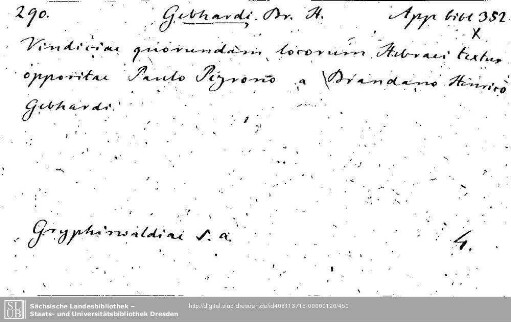 290. Gebhardi. Br. H. App bibl 352
x
Vindiciae quorundam locorum Hebraei textus
oppositae Paulo Pezrono a Brandano Henrico
Gebhardi.
Gryphiswaldiae s. a. 4.
Sächsische Landesbibliothek –
Staats- und Universitätsbibliothek Dresden